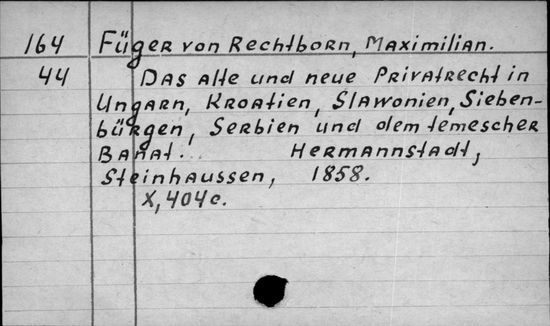 164 Füger von Rechtborn, Maximilian.
44 Das alte und neue Privatrecht in
Ungarn, Kroatien, Slawonien, Sieben-
bürgen, Serbien und dem temescher
Banat. Hermannstadt,
Steinhaussen, 1858.
X, 404 c.